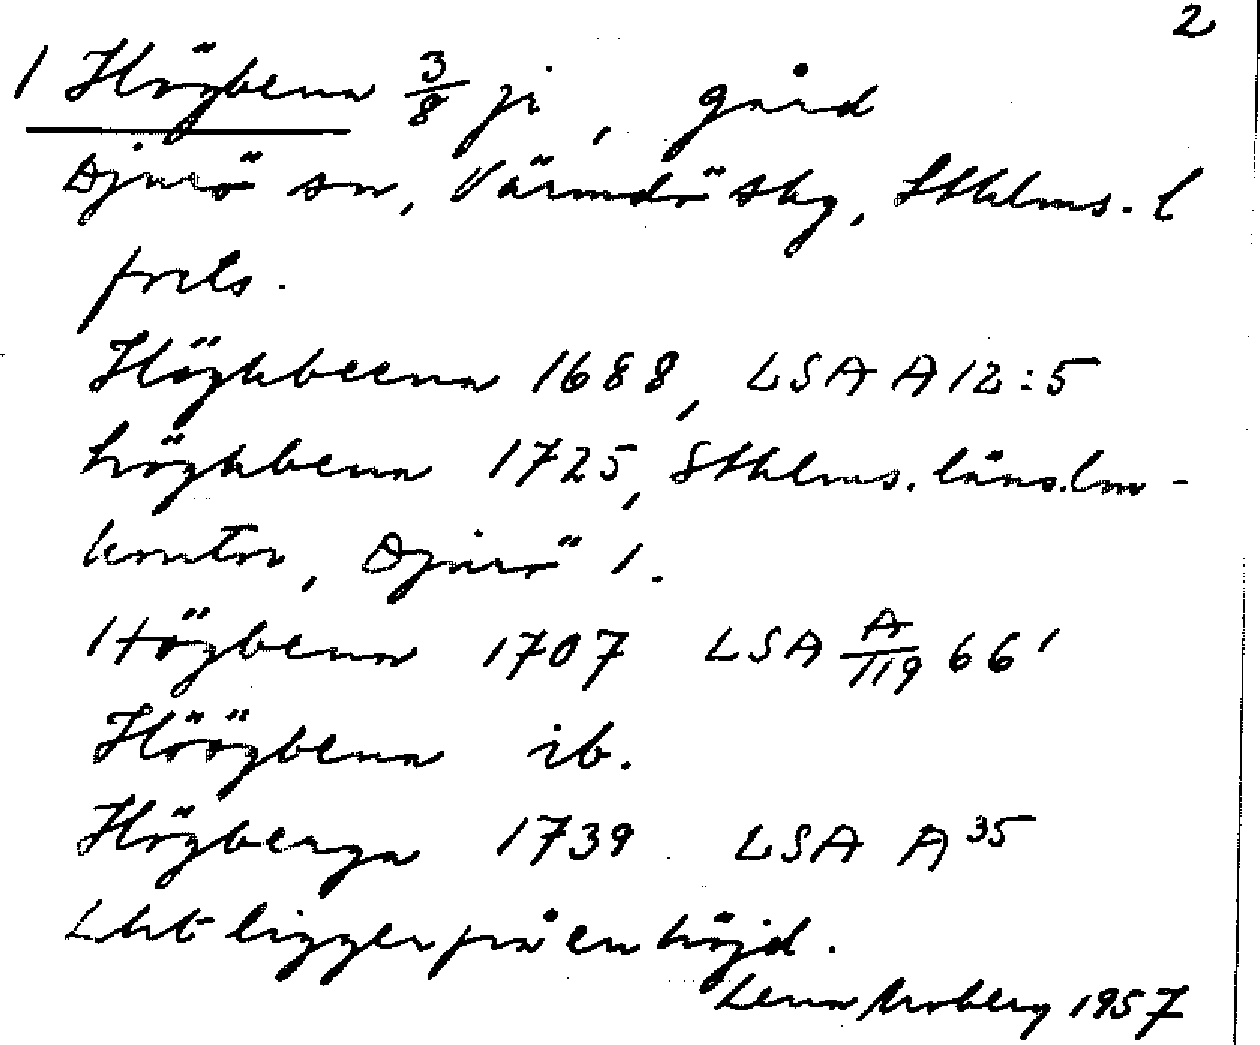 2
1 Högbena 3/8 ji, gård
Djurö sn, Värmdö skg, Sthlms. l
frels.
Höghbeena 1688, LSA A 12:5
höghbena 1725, Sthlms. läns.lm-
kontor, Djurö 1.
Högbena 1707 LSA A/119 66'
Höögbena ib.
Högberga 1739 LSA A 35
Lht ligger på en höjd.
Lena Moberg 1957